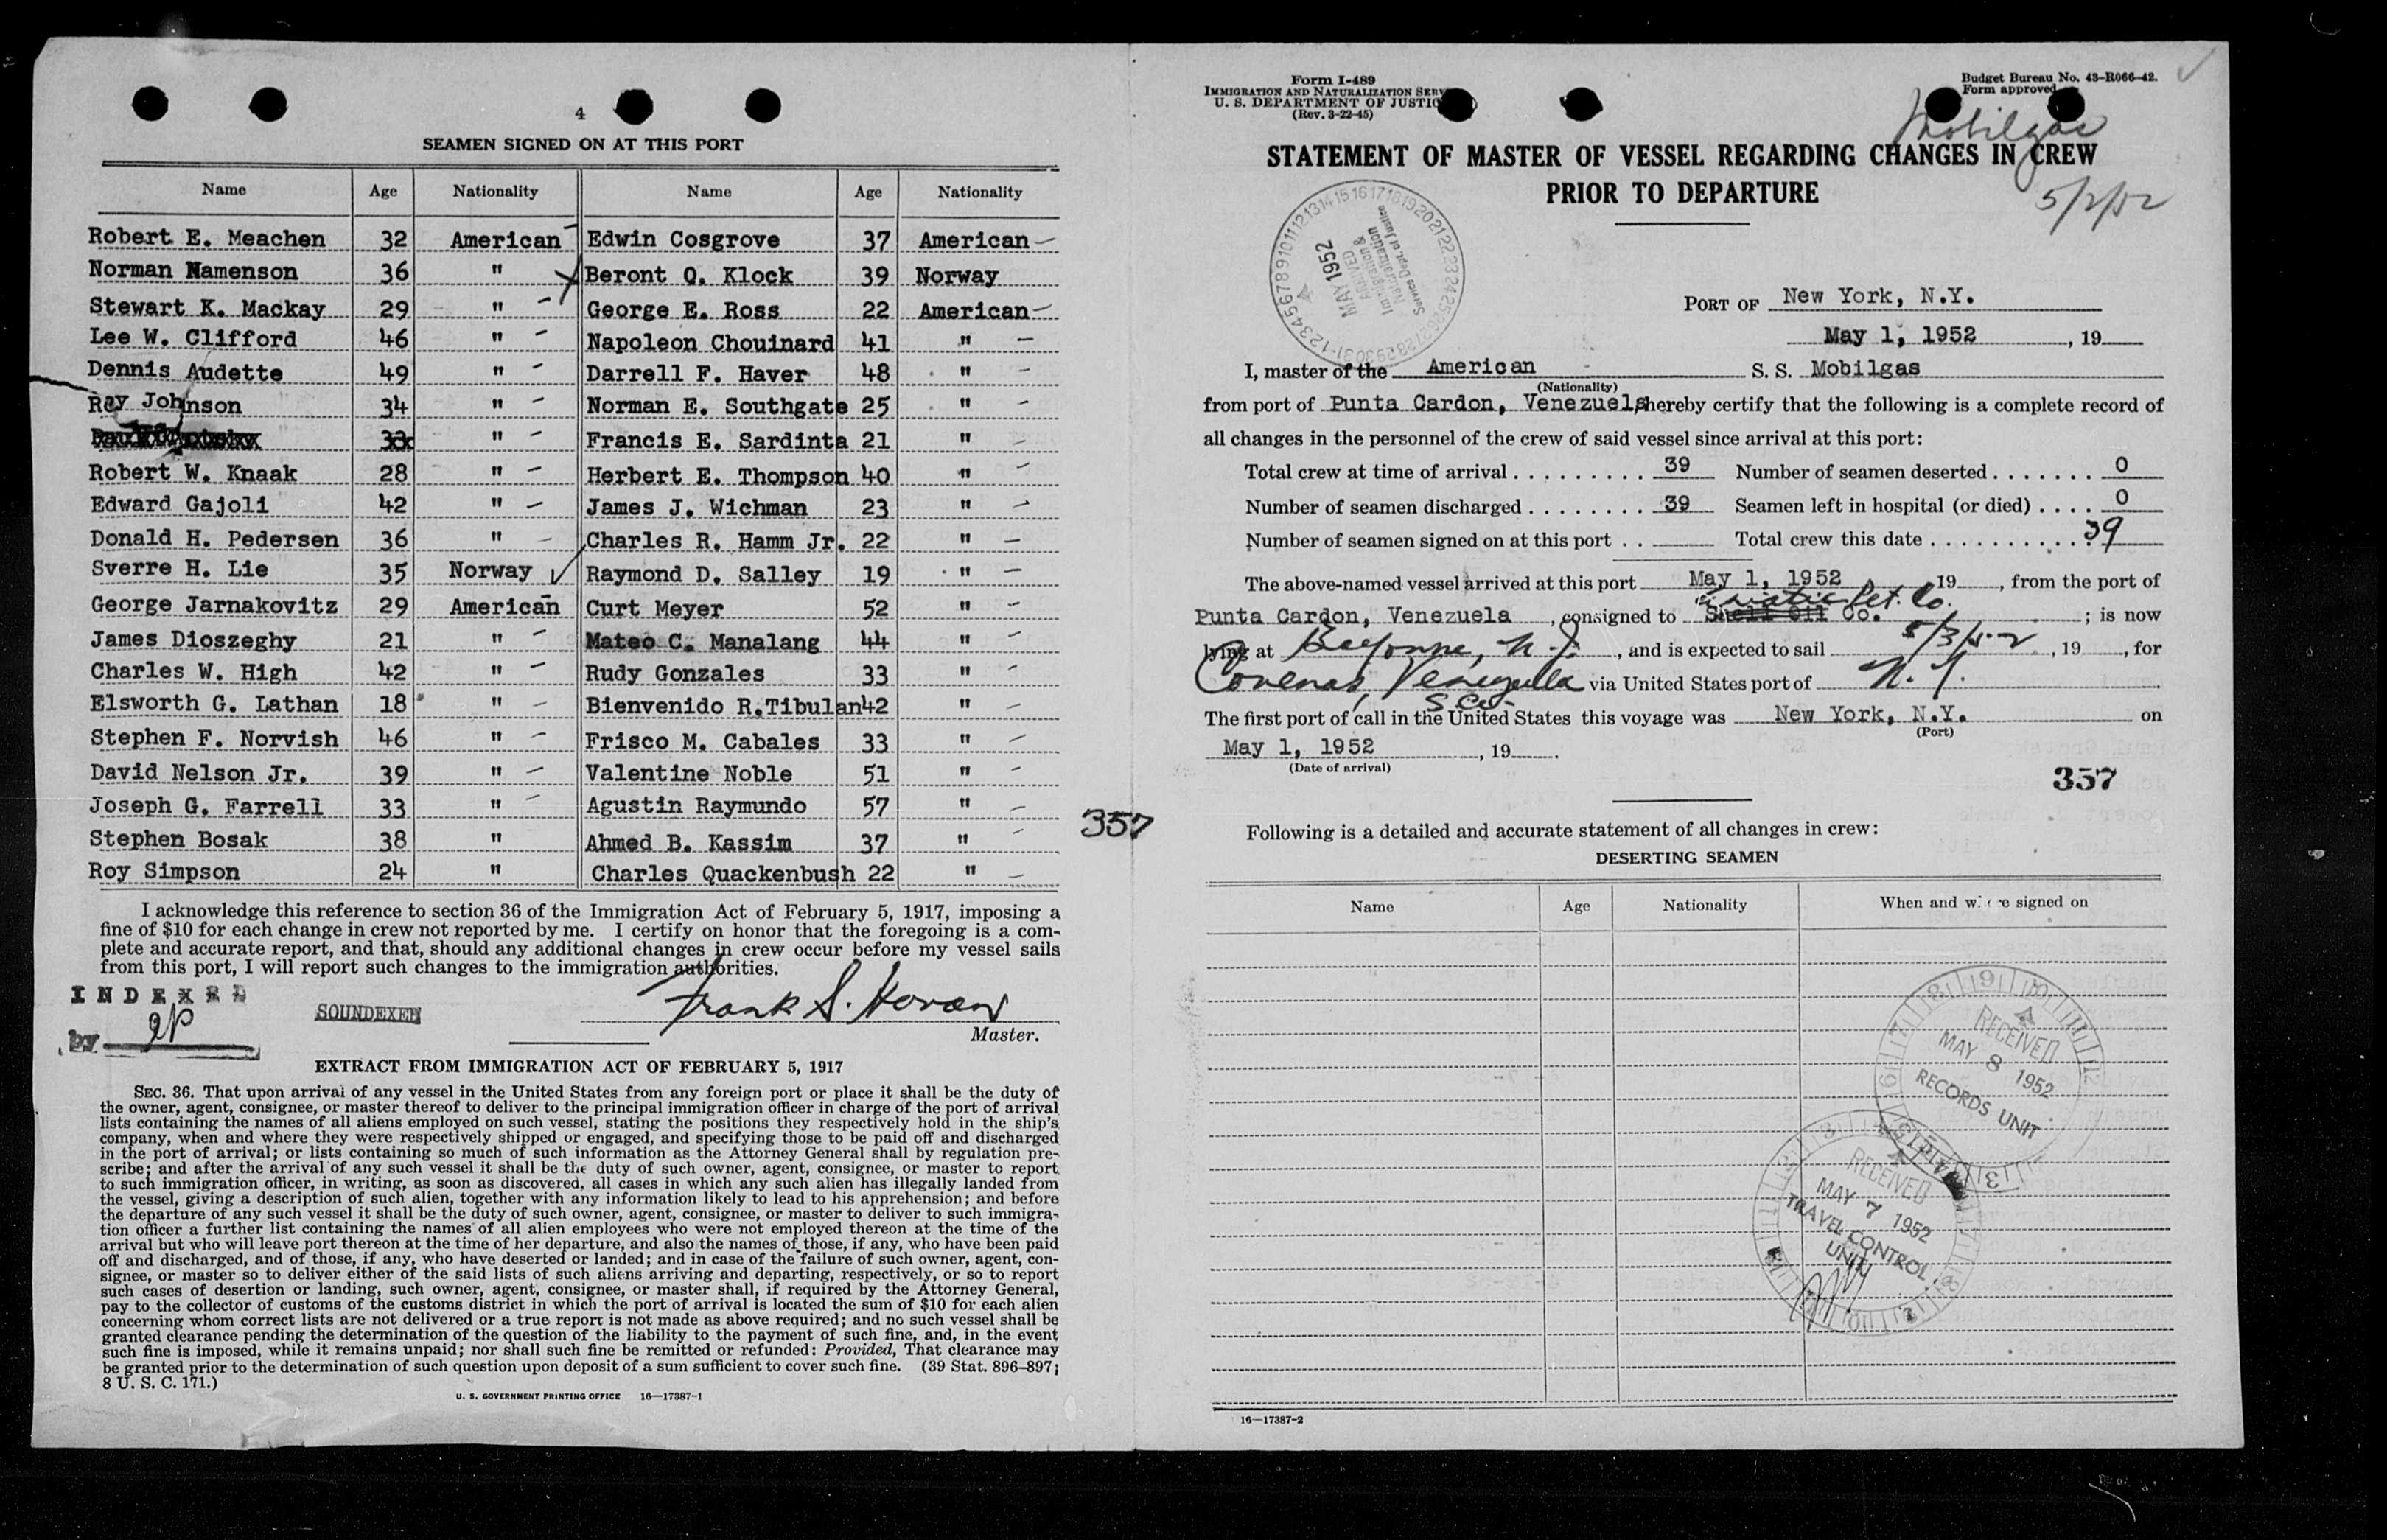 4
SEAMEN SIGNED ON AT THIS PORT
Name Age Nationality Name Age Nationality
Robert E. Meachen 32 American Edwin Cosgrove 37 American
Norman Namenson 36 " Beront O. Klock 39 Norway
Stewart K. Mackay 29 " George E. Ross 22 American
Lee W. Clifford 46 " Napoleon Chouinard 41 "
Dennis Audette 49 " Darrell F. Haver 48 "
Ray Johnson 34 " Norman E. Southgate 25 "
33 " Francis E. Sardinta 21 "
Robert W. Knaak 28 " Herbert E. Thompson 40 "
Edward Gajoli 42 " James J. Wichman 23 "
Donald H. Pedersen 36 " Charles R. Hamm Jr. 22 "
Sverre H. Lie 35 Norway Raymond D. Salley 19 "
George Jarnakovitz 29 American Curt Meyer 52 "
James Dioszeghy 21 " Mateo C. Manalang 44 "
Charles W. High 42 " Rudy Gonzales 33 "
Elsworth G. Lathan 18 " Bienvenido R.Tibulan 42 "
Stephen F. Norvish 46 " Frisco M. Cabales 33 "
David Nelson Jr. 39 " Valentine Noble 51 "
Joseph G. Farrell 33 " Agustin Raymundo 57 "
Stephen Bosak 38 " Ahmed B. Kassim 37 "
Roy Simpson 24 " Charles Quackenbush 22 "
357
I acknowledge this reference to section 36 of the Immigration Act of February 5, 1917, imposing a
fine of $10 for each change in crew not reported by me. I certify on honor that the foregoing is a com-
plete and accurate report, and that, should any additional changes in crew occur before my vessel sails
from this port, I will report such changes to the immigration authorities.
INDEXED
by
SOUNDEXED
Frank S. Horan
Master.
EXTRACT FROM IMMIGRATION ACT OF FEBRUARY 5, 1917
SEC. 36. That upon arrival of any vessel in the United States from any foreign port or place it shall be the duty of
the owner, agent, consignee, or master thereof to deliver to the principal immigration officer in charge of the port of arrival
lists containing the names of all aliens employed on such vessel, stating the positions they respectively hold in the ship's
company, when and where they were respectively shipped or engaged, and specifying those to be paid off and discharged
in the port of arrival; or lists containing so much of such information as the Attorney General shall by regulation pre-
scribe; and after the arrival of any such vessel it shall be the duty of such owner, agent, consignee, or master to report
to such immigration officer, in writing, as soon as discovered, all cases in which any such alien has illegally landed from
the vessel, giving a description of such alien, together with any information likely to lead to his apprehension; and before
the departure of any such vessel it shall be the duty of such owner, agent, consignee, or master to deliver to such immigra-
tion officer a further list containing the names of all alien employees who were not employed thereon at the time of the
arrival but who will leave port thereon at the time of her departure, and also the names of those, if any, who have been paid
off and discharged, and of those, if any, who have deserted or landed; and in case of the failure of such owner, agent, con-
signee, or master so to deliver either of the said lists of such aliens arriving and departing, respectively, or so to report
such cases of desertion or landing, such owner, agent, consignee, or master shall, if required by the Attorney General,
pay to the collector of customs of the customs district in which the port of arrival is located the sum of $10 for each alien
concerning whom correct lists are not delivered or a true report is not made as above required; and no such vessel shall be
granted clearance pending the determination of the question of the liability to the payment of such fine, and, in the event
such fine is imposed, while it remains unpaid; nor shall such fine be remitted or refunded: Provided, That clearance may
be granted prior to the determination of such question upon deposit of a sum sufficient to cover such fine. (39 Stat. 896–897;
8 U. S. C. 171.)
U. S. GOVERNMENT PRINTING OFFICE 16—17387-1
Form I-489
IMMIGRATION AND NATURALIZATION
U. S. DEPARTMENT OF
(Rev. 3-22-45)
Budget Bureau No. 43-R066-42.
Form approved
Mobilgas
5/2/52
STATEMENT OF MASTER OF VESSEL REGARDING CHANGES IN CREW
PRIOR TO DEPARTURE
MAY 1952
Immigration &
Naturalization
Service Dept. of Justice
PORT OF New York, N.Y.
May 1, 1952, 19
I, master of the American S. S. Mobilgas
(Nationality)
from port of Punta Cardon, Venezuela hereby certify that the following is a complete record of
all changes in the personnel of the crew of said vessel since arrival at this port:
Total crew at time of arrival 39 Number of seamen deserted 0
Number of seamen discharged 39 Seamen left in hospital (or died) 0
Number of seamen signed on at this port Total crew this date 39
The above-named vessel arrived at this port May 1, 1952 19, from the port of
Asiatic Pet. Co.
Punta Cardon, Venezuela, consigned to Shell Oil Co.; is now
lying at Bayonne, N.J., and is expected to sail 5/3/52, 19, for
Covenas, Venezuela via United States port of N.Y.
The first port of call in the United States this voyage was New York, N.Y. on
(Port)
May 1, 1952, 19.
(Date of arrival)
357
Following is a detailed and accurate statement of all changes in crew:
DESERTING SEAMEN
Name Age Nationality When and where signed on
RECEIVED
MAY 8 1952
RECORDS UNIT
RECEIVED
MAY 7 1952
TRAVEL CONTROL
UNIT
16—17387-2